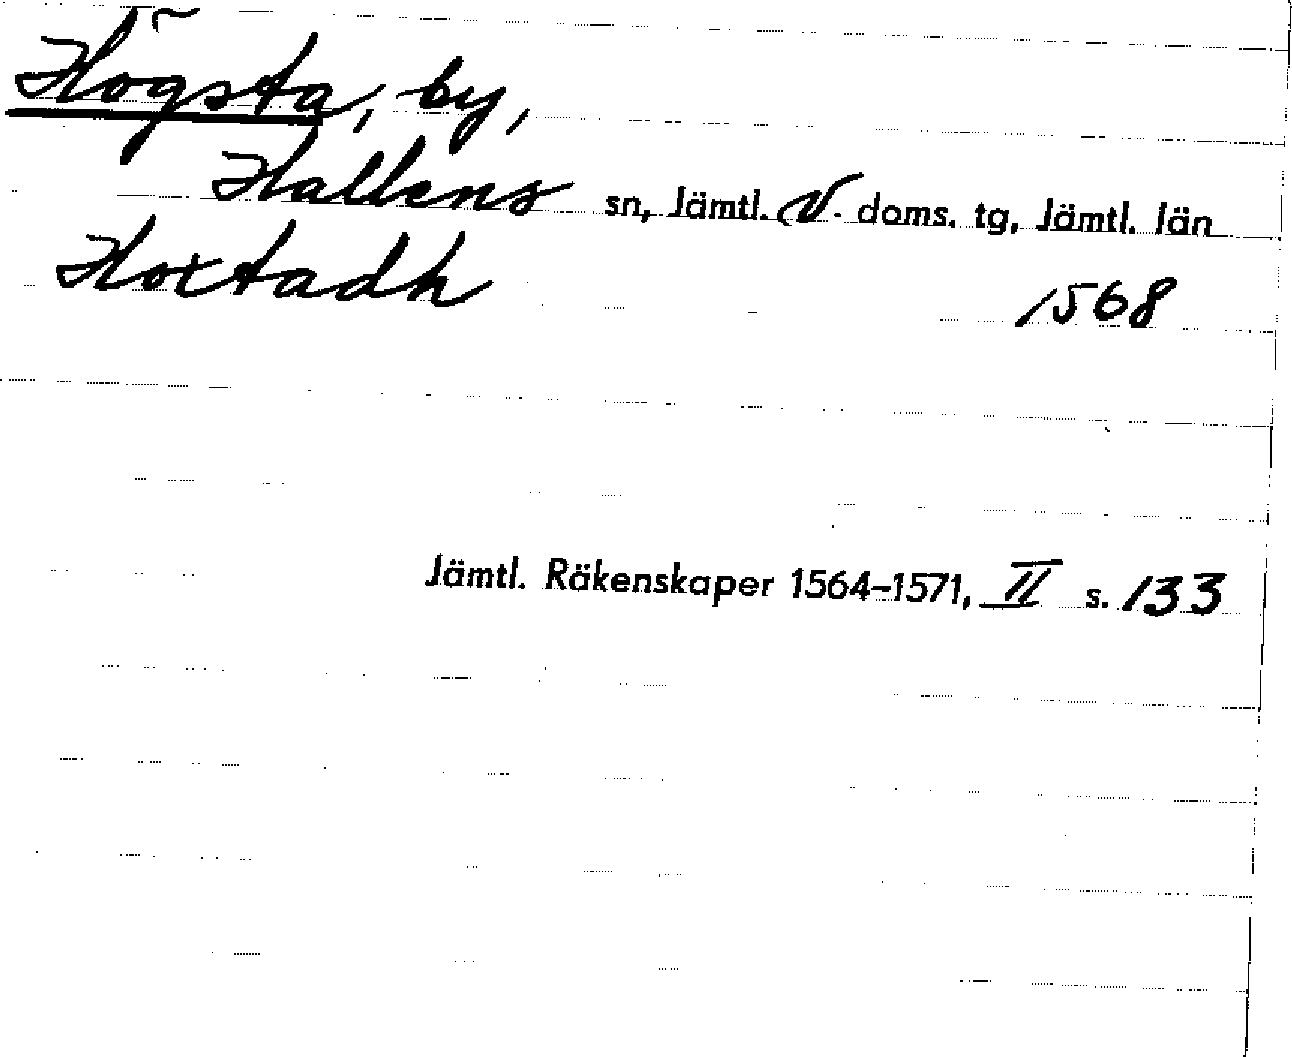 Högsta, by,
Hallens sn, Jämtl. V. doms. tg, Jämtl. län
Hoxtadh 1568
Jämtl. Räkenskaper 1564–1571, II s. 133